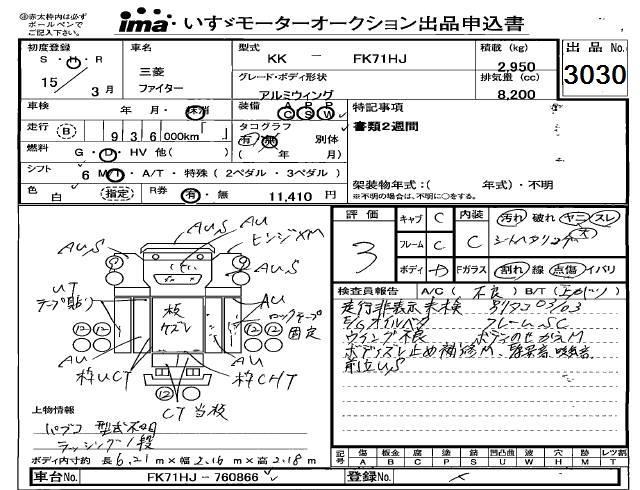 ㊟赤太枠内は必ず
ボールペンで
ご記入下さい。
ima いすゞモーターオークション出品申込書
初度登録
S・H・R
15 3月
車名
三菱
ファイター
型式
KK － FK71HJ
グレード・ボディ形状
アルミウイング
積載 (kg)
2,950
排気量 (cc)
8,200
出品No.
3030
車検
年 月・抹消
装備
A P P
C S W
特記事項
書類2週間
走行 B 936000km「 」
タコグラフ
有・無 別体
( 年 月)
燃料 G・D・HV 他( )
シフト 6 MT・A/T・特殊(2ペダル・3ペダル)
色 白 (指定) R券 有・無 11,410 円
架装物年式:( 年式)・不明
※不明の場合は、不明に○をする。
評価
3
キャブ C
フレーム C
ボディ
内装
C
汚れ 破れ ヤニ スレ
大
Fガラス 割れ 線 点傷 イバリ
検査員報告 A/C( 不良 ) B/T( )
走行非表示 未検 別タコ03/03
E/Gオイルベタ フレームSC
ウイング不良
前立US
AUS
AU
ヒンジXM
AUS
AUS
UT
テープ貼り
板
ケズレ
AU
ロックテープ
固定
AU
AU
枠UCT
枠CHT
CT当板
上物情報
パブコ 型式不明
ラッシング1段
ボディ内寸約 長6.21m×幅2.16m×高2.18m
記号
傷 A
板金 B
腐 C
塗 P
錆 S
凹凸曲 U
波 W
穴 H
跡 M
レツ割 T
車台No. FK71HJ－760866
登録No.